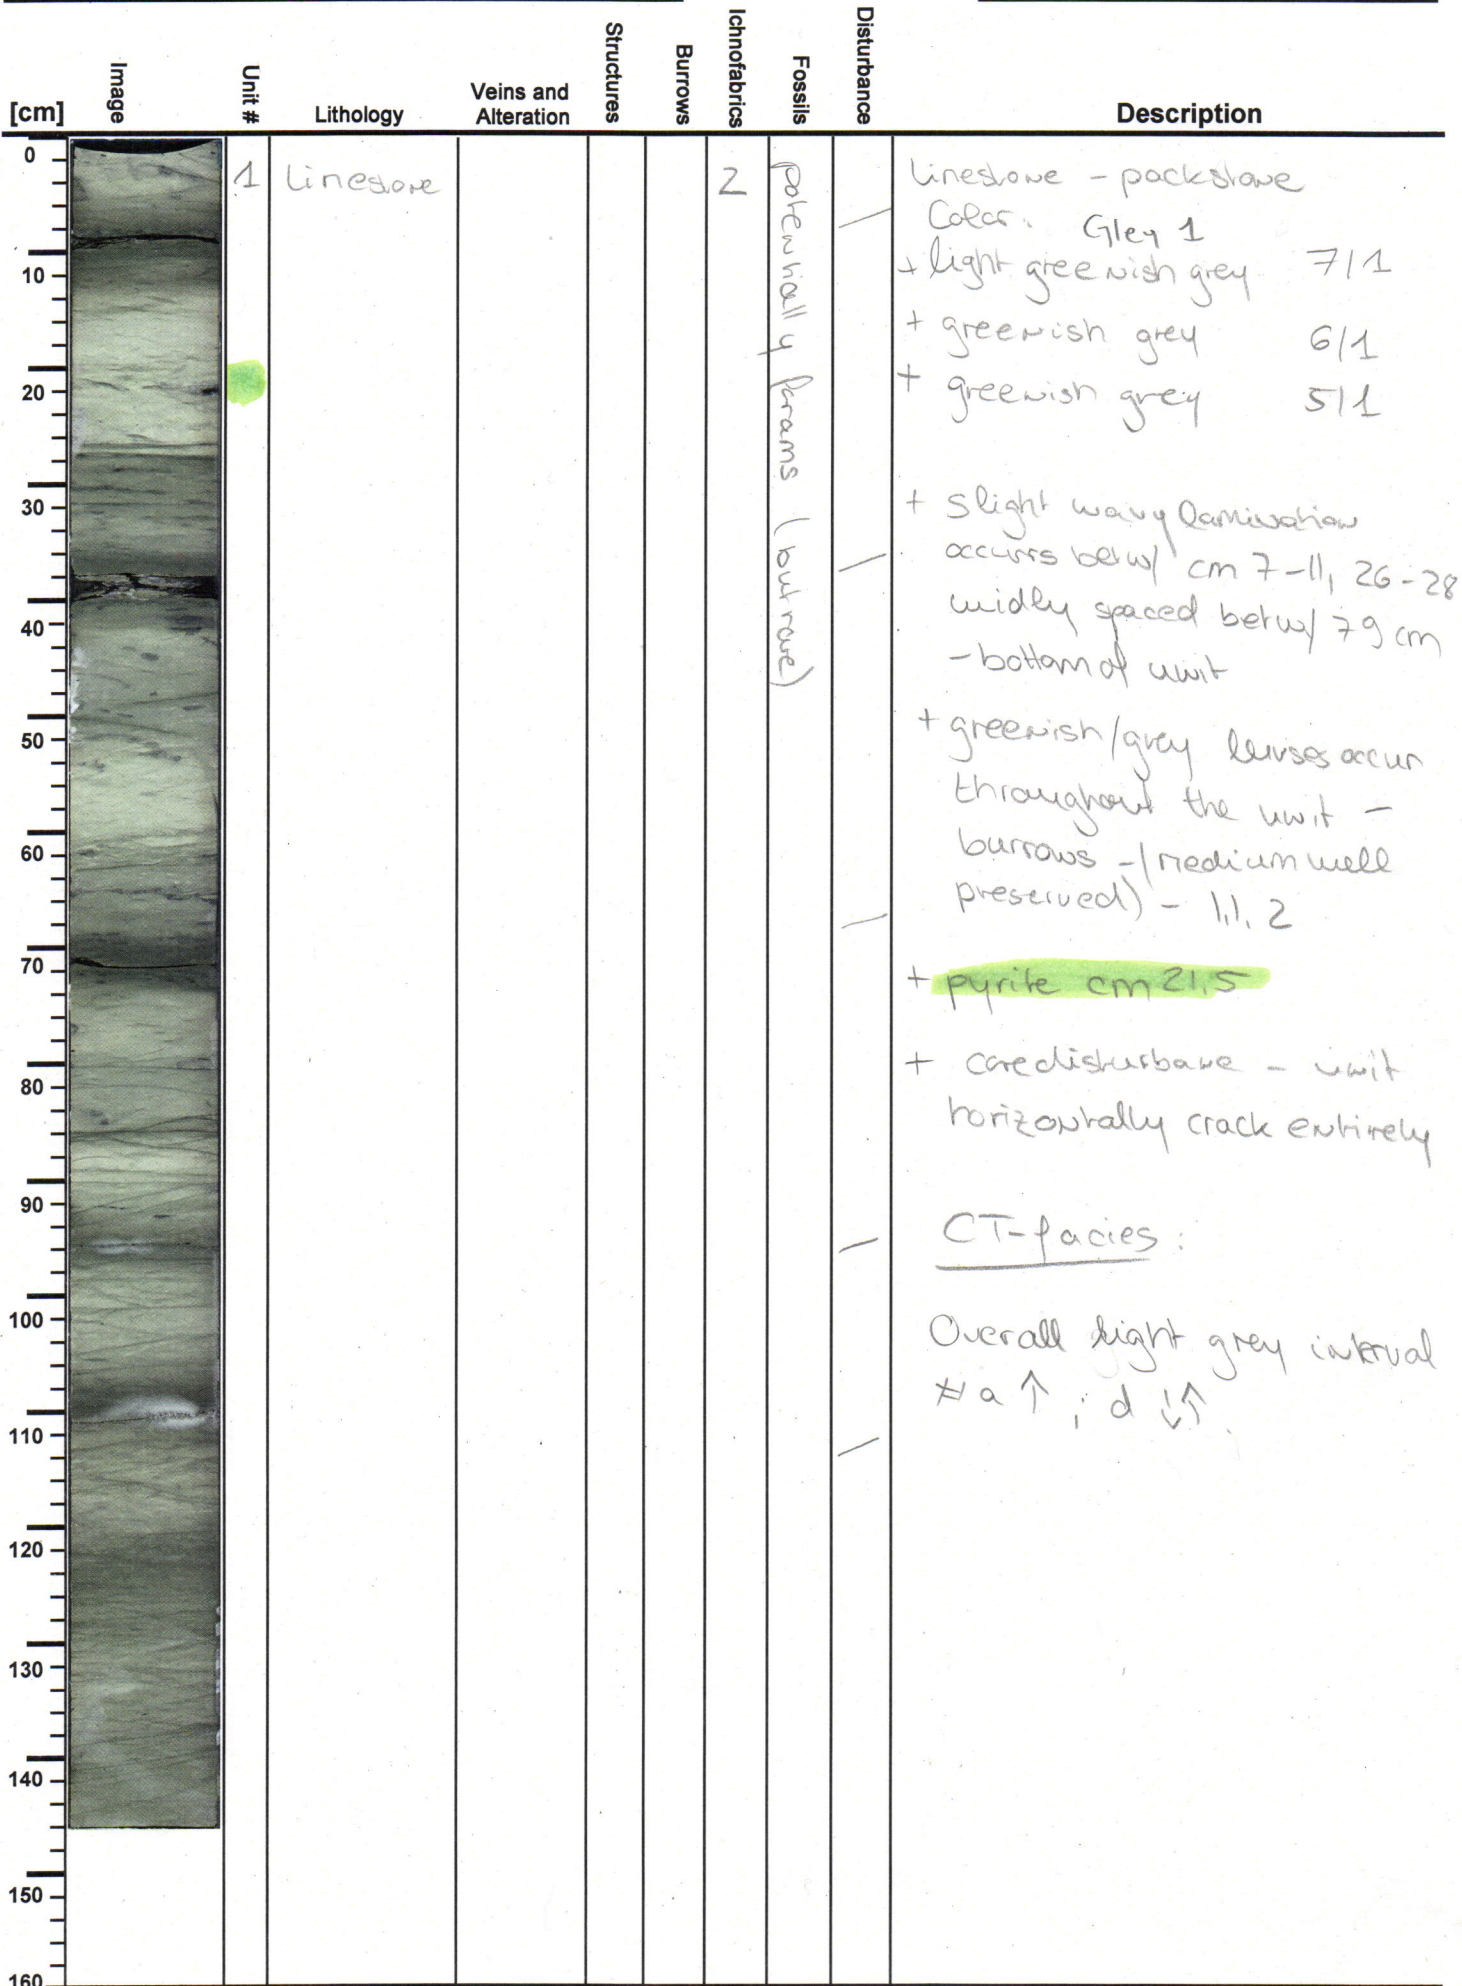 [cm]
Image
Unit #
Lithology
Veins and
Alteration
Structures
Burrows
Ichnofabrics
Fossils
Disturbance
Description
0
10
20
30
40
50
60
70
80
90
100
110
120
130
140
150
160
1
Limestone
2
potentially forams (but rare)
Limestone - packstone
Color: Gley 1
+ light greenish grey 7/1
+ greenish grey 6/1
+ greenish grey 5/1
+ slight wavy lamination
occurrs betw/ cm 7-11, 26-28
widly spaced betw/ 79 cm
- bottom of unit
+ greenish/grey lenses occur
throughout the unit -
burrows - (medium well
preserved) - 1.1. 2
+ pyrite cm 21,5
+ coredisturbance - unit
horizontally crack entirely
CT-facies:
Overall light grey interval
# a ↑ ; d ↓↑